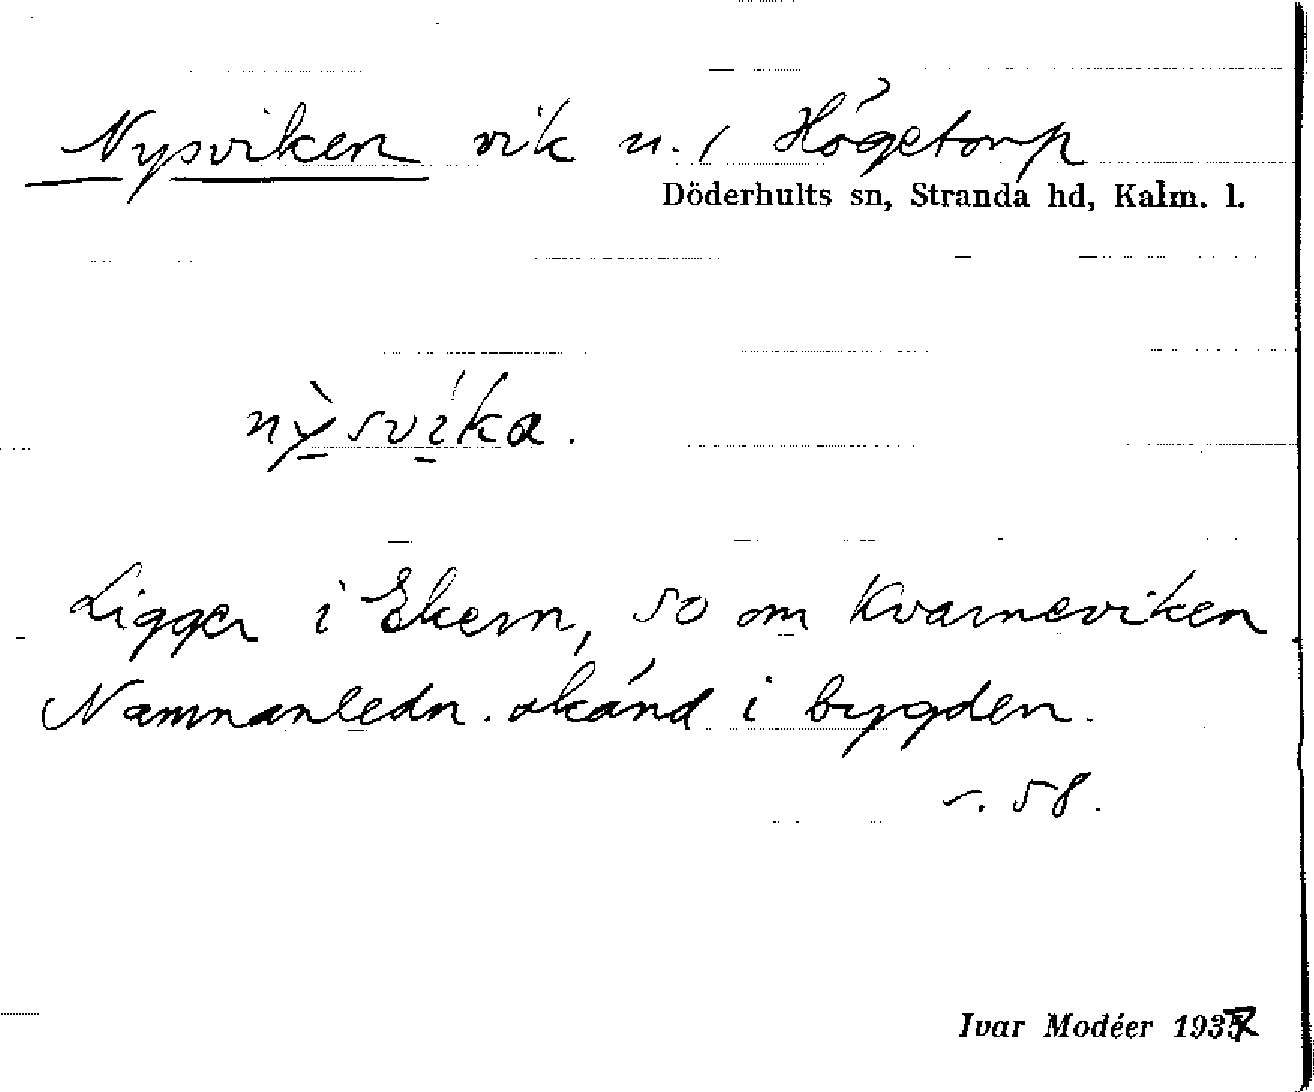 Nysviken vik u. / Högetorp
Döderhults sn, Stranda hd, Kalm. l.
nỳsvíka.
Ligger i Ekern, so om Kvarneviken
Namnanledn. okänd i bygden.
58.
Ivar Modéer 1937